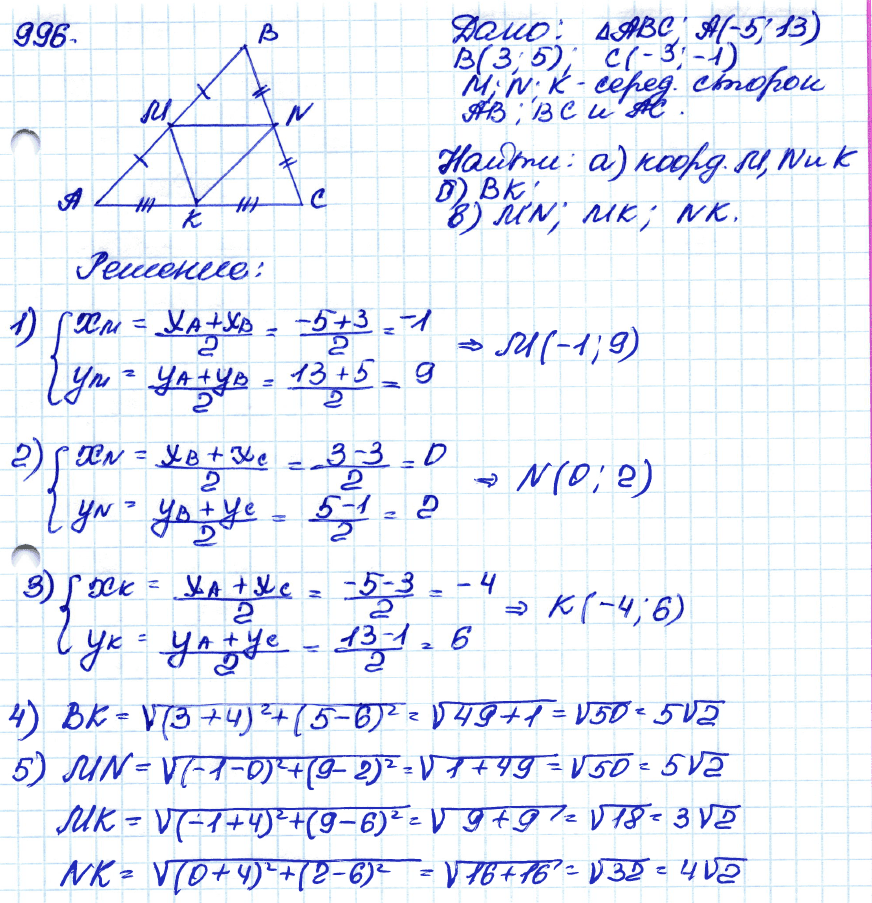 996.
Дано: ΔABC; A(-5; 13)
B(3; 5); C(-3; -1)
M; N; K - серед. сторон
AB; BC и AC.
Найти: а) коорд. M, N и K
б) BK;
в) MN; MK; NK.
B
M N
A K C
Решение:
1) { xM = (xA + xB)/2 = (-5+3)/2 = -1
yM = (yA + yB)/2 = (13+5)/2 = 9 ⇒ M(-1; 9)
2) { xN = (xB + xC)/2 = (3-3)/2 = 0
yN = (yB + yC)/2 = (5-1)/2 = 2 ⇒ N(0; 2)
3) { xK = (xA + xC)/2 = (-5-3)/2 = -4
yK = (yA + yC)/2 = (13-1)/2 = 6 ⇒ K(-4; 6)
4) BK = √((3+4)²+(5-6)²) = √(49+1) = √50 = 5√2
5) MN = √((-1-0)²+(9-2)²) = √(1+49) = √50 = 5√2
MK = √((-1+4)²+(9-6)²) = √(9+9) = √18 = 3√2
NK = √((0+4)²+(2-6)²) = √(16+16) = √32 = 4√2